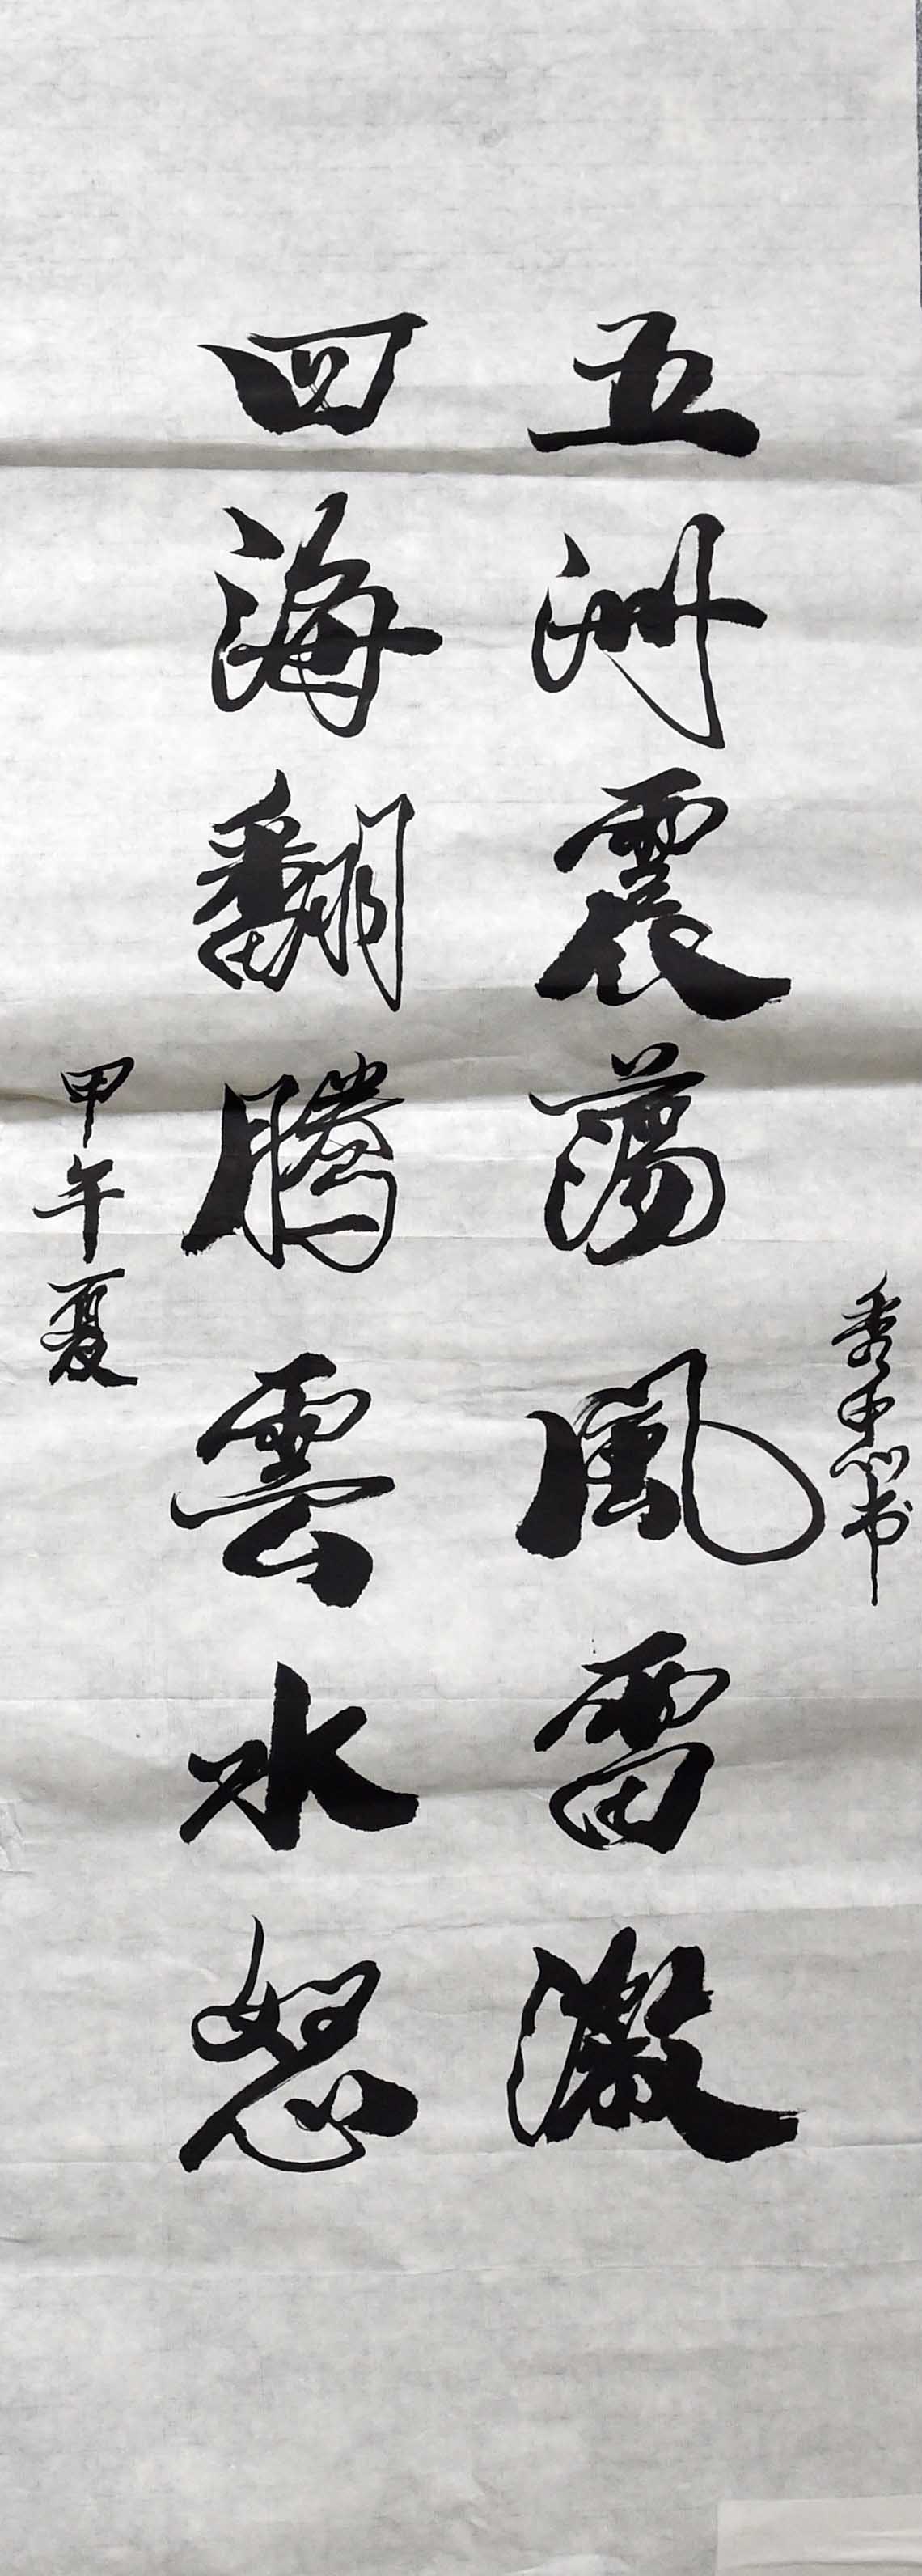 中书
五洲震蕩風雷激
四海翻騰雲水怒
甲午夏